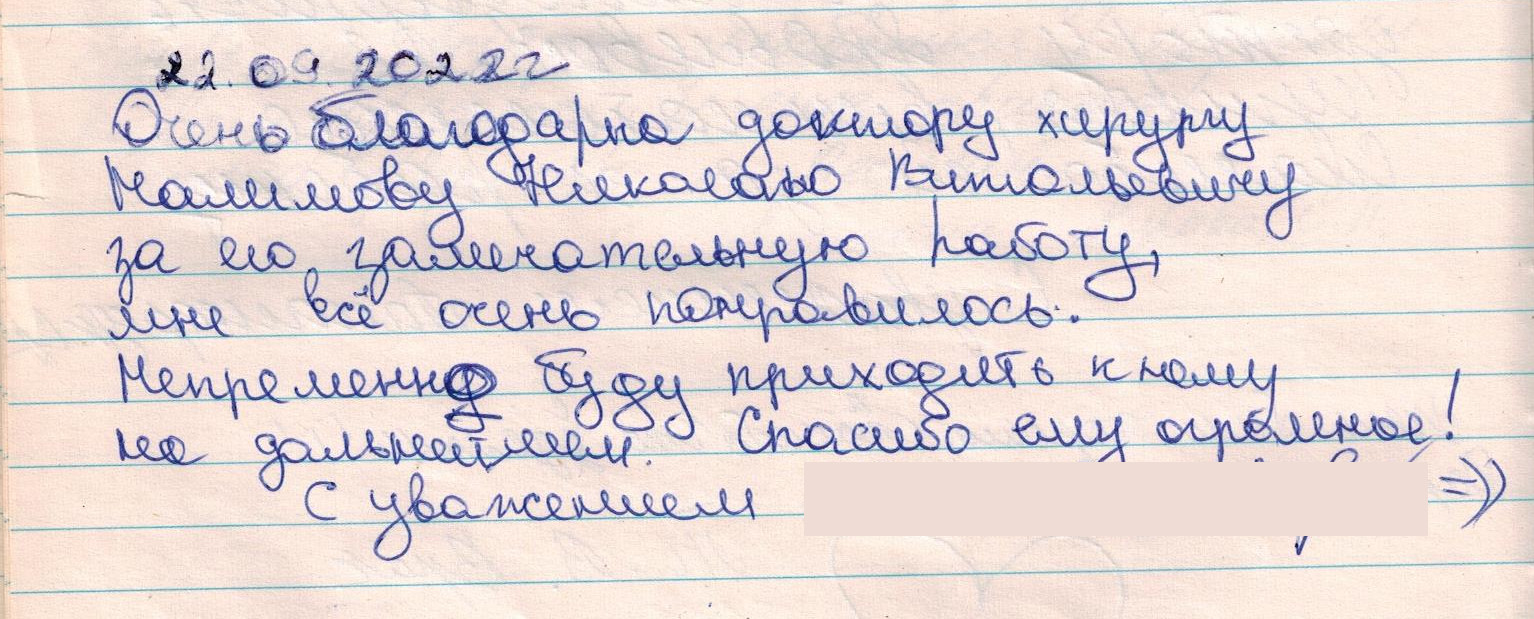 22.09.2022г
Очень благодарна доктору хирургу
Налимову Николаю Витальевичу
за его замечательную работу,
мне всё очень понравилось.
Непременно буду приходить к нему
на дальнейшем. Спасибо ему огромное!
С уважением =))